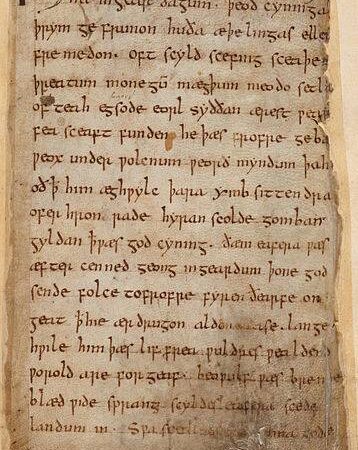 na ingear dagum. þeod cyninga
þrym ge frunon huða æþelingas elle
fremedon. oft scyld scefing sceaþe
þreatum monegū mægþum meodo setla
of teah egsode eorl syððan ærest wear
fea sceaft funden he þæs frofre geba
weox under wolcnum weorð myndum þah
oð ꝥ him æghwylc þara ymb sittendra
ofer hron rade hyran scolde gomban
gyldan ꝥ wæs god cyning. ðæm eafera wæs
æfter cenned geong ingeardum þone god
sende folce tofrofre fyren ðearfe on
geat ꝥ hie ær drugon aldor ase. lange
hwile him þæs lif frea wuldres wealdend
worold are forgeaf. beowulf wæs breme
blæd wide sprang scyldes eafera scede
landum in. Swa sceal guma gode